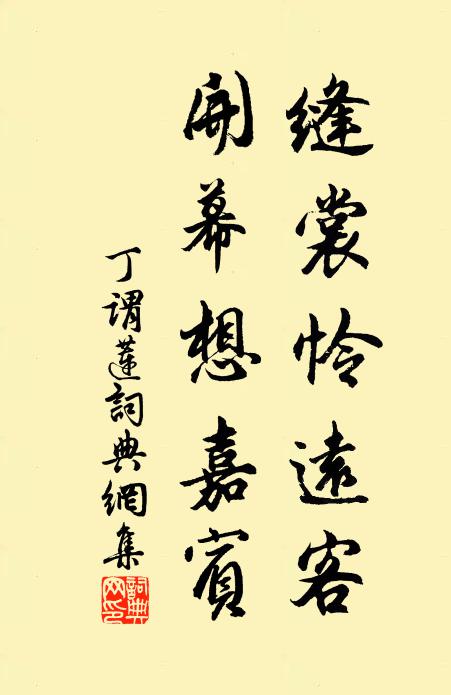 縫裳怜遠客
開幕想嘉賓
丁謂蓮詞典網集
詞典網印